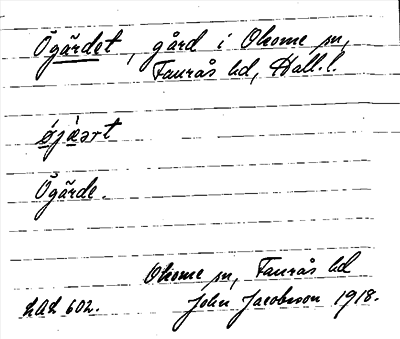 Ögärdet, gård i Okome sn,
Faurås hd, Hall. l.
øjäərt
Ögärde.
Okome sn, Faurås hd
LAL 602. John Jacobsson 1918.